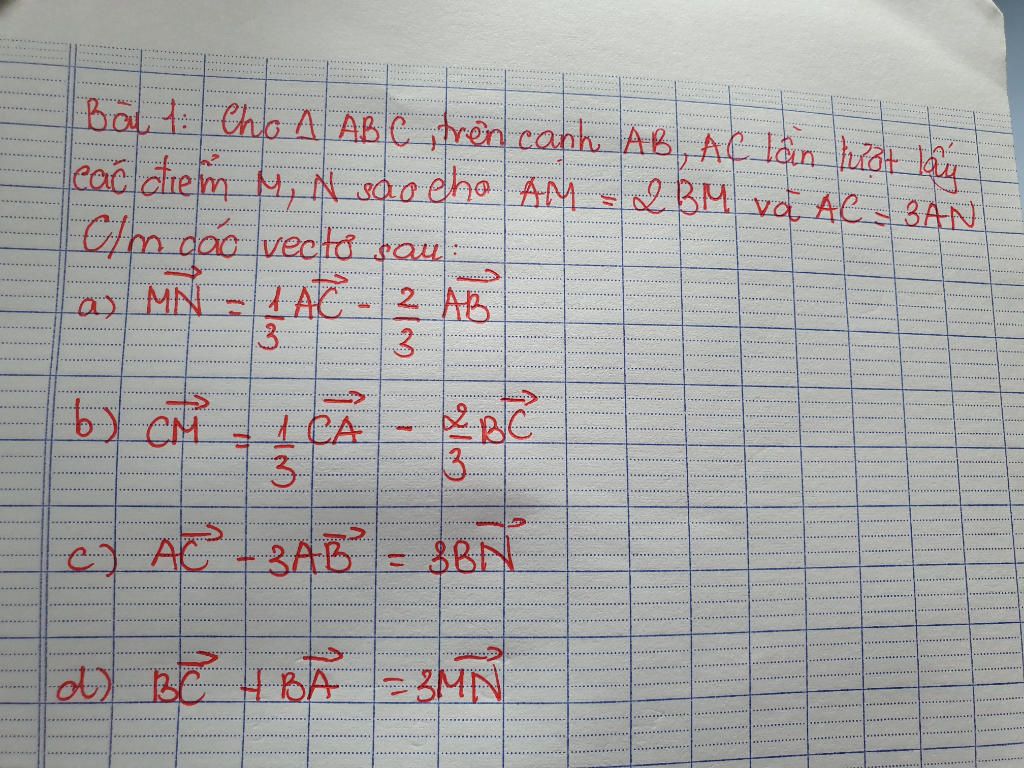 Bài 1: Cho Δ ABC, trên cạnh AB, AC lần lượt lấy
các điểm M, N sao cho AM = 2BM và AC = 3AN
C/m các vectơ sau:
a) $\overrightarrow{MN} = \frac{1}{3}\overrightarrow{AC} - \frac{2}{3}\overrightarrow{AB}$
b) $\overrightarrow{CM} = \frac{1}{3}\overrightarrow{CA} - \frac{2}{3}\overrightarrow{BC}$
c) $\overrightarrow{AC} - 3\overrightarrow{AB} = 3\overrightarrow{BN}$
d) $\overrightarrow{BC} + \overrightarrow{BA} = 3\overrightarrow{MN}$